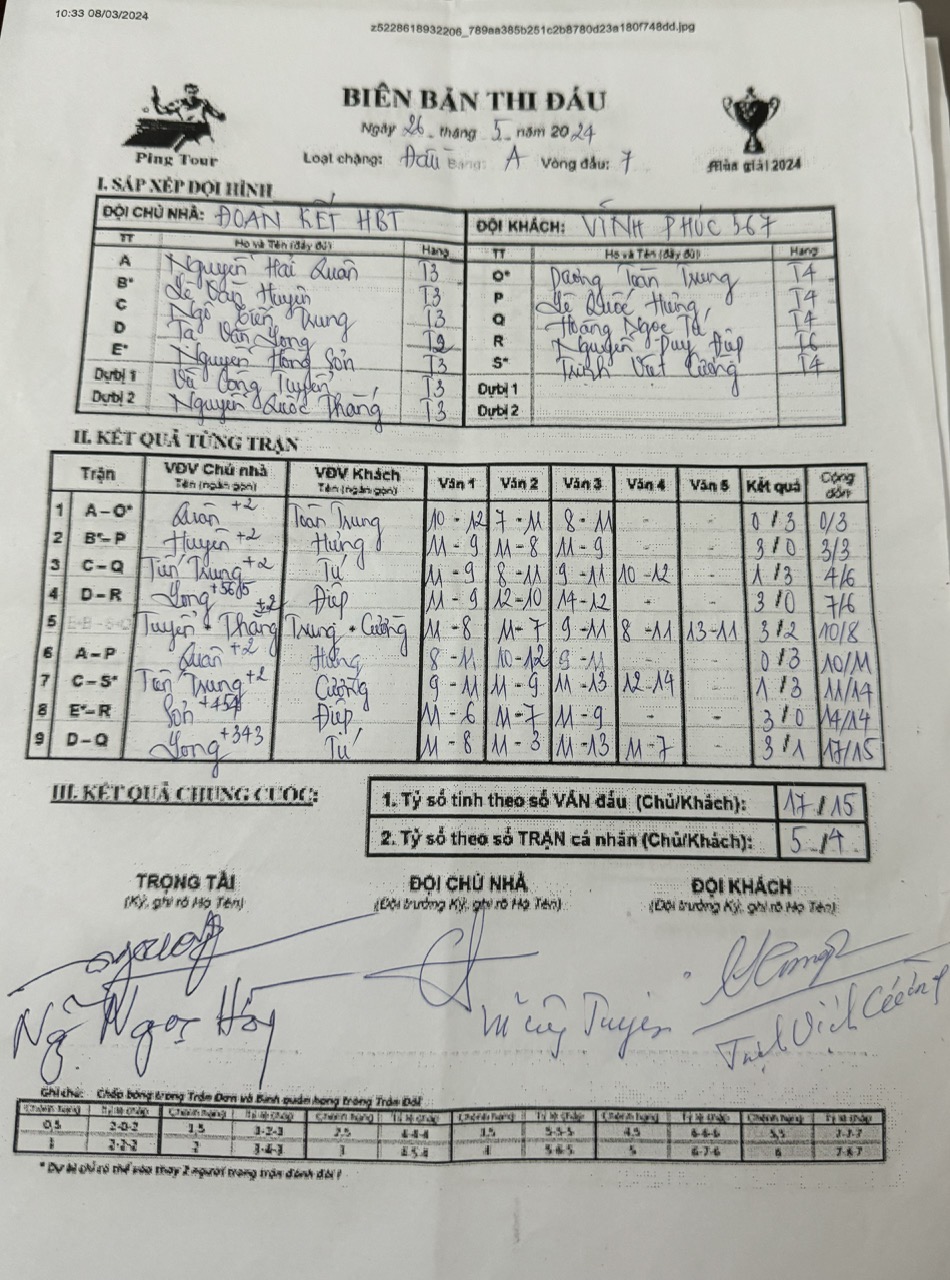 10:33 08/03/2024
z5228618932206_789aa385b251c2b8780d23a180f748dd.jpg
BIÊN BẢN THI ĐẤU
Ping Tour
Ngày 26 tháng 5 năm 2024
Loạt chặng: Đấu Bảng: A Vòng đấu: 7
Mùa giải 2024
I. SẮP XẾP ĐỘI HÌNH
ĐỘI CHỦ NHÀ: ĐOÀN KẾT HBT ĐỘI KHÁCH: VĨNH PHÚC 567
TT Họ và Tên (đầy đủ) Hạng TT Họ và Tên (đầy đủ) Hạng
A Nguyễn Hải Quân T3 O* Dương Toàn Trung T4
B* Lê Văn Huyên T3 P Lê Quốc Hưng T4
C Ngô Tiến Trung T3 Q Hoàng Ngọc Tú T4
D Tạ Văn Long T2 R Nguyễn Duy Điệp T6
E* Nguyễn Hồng Sơn T3 S* Trịnh Việt Cường T4
Dự bị 1 Vũ Công Tuyển T3 Dự bị 1
Dự bị 2 Nguyễn Quốc Thắng T3 Dự bị 2
II. KẾT QUẢ TỪNG TRẬN
Trận VĐV Chủ nhà Tên (ngắn gọn) VĐV Khách Tên (ngắn gọn) Ván 1 Ván 2 Ván 3 Ván 4 Ván 5 Kết quả Cộng dồn
1 A – O* Quân +2 Toàn Trung 10 - 12 7 - 11 8 - 11 - - 0 / 3 0/3
2 B* – P Huyên +2 Hưng 11 - 9 11 - 8 11 - 9 - - 3 / 0 3/3
3 C – Q Tiến Trung +2 Tú 11 - 9 8 - 11 9 - 11 10 - 12 - 1 / 3 4/6
4 D – R Long +5685 Điệp 11 - 9 12 - 10 14 - 12 - - 3 / 0 7/6
5 Tuyển + Thắng +2 Trung + Cường 11 - 8 11 - 7 9 - 11 8 - 11 13 - 11 3 / 2 10/8
6 A – P Quân +2 Hưng 8 - 11 10 - 12 9 - 11 - - 0 / 3 10/11
7 C – S* Tiến Trung +2 Cường 9 - 11 11 - 9 11 - 13 12 - 14 - 1 / 3 11/14
8 E* – R Sơn +454 Điệp 11 - 6 11 - 7 11 - 9 - - 3 / 0 14/14
9 D – Q Long +343 Tú 11 - 8 11 - 3 11 - 13 11 - 7 - 3 / 1 17/15
III. KẾT QUẢ CHUNG CUỘC:
1. Tỷ số tính theo số VÁN đấu (Chủ/Khách): 17 / 15
2. Tỷ số theo số TRẬN cá nhân (Chủ/Khách): 5 / 4
TRỌNG TÀI ĐỘI CHỦ NHÀ ĐỘI KHÁCH
(Ký, ghi rõ Họ Tên) (Đội trưởng Ký, ghi rõ Họ Tên) (Đội trưởng Ký, ghi rõ Họ Tên)
Ngọc
Ghi chú: Chấp bóng trong Trận Đơn và Bình quân hạng trong Trận Đôi
Chênh hạng Tỷ lệ chấp Chênh hạng Tỷ lệ chấp Chênh hạng Tỷ lệ chấp Chênh hạng Tỷ lệ chấp Chênh hạng Tỷ lệ chấp Chênh hạng Tỷ lệ chấp
0,5 2-0-2 1,5 3-2-3 2,5 4-4-4 3,5 5-5-5 4,5 6-6-6 5,5 7-7-7
1 2-2-2 2 3-4-3 3 4-5-4 4 5-6-5 5 6-7-6 6 7-8-7
* Dự bị chỉ có thể vào thay 2 người trong trận đánh đôi !